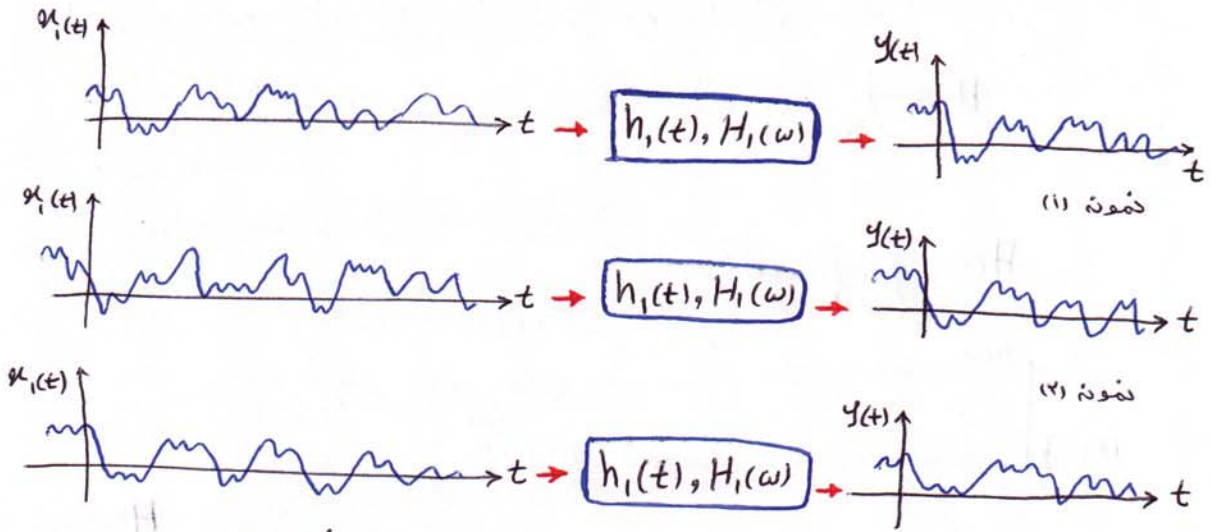 x₁(t) t h₁(t), H₁(ω) y(t) t
نمونه (۱)
x₁(t) t h₁(t), H₁(ω) y(t) t
نمونه (۲)
x₁(t) t h₁(t), H₁(ω) y(t) t